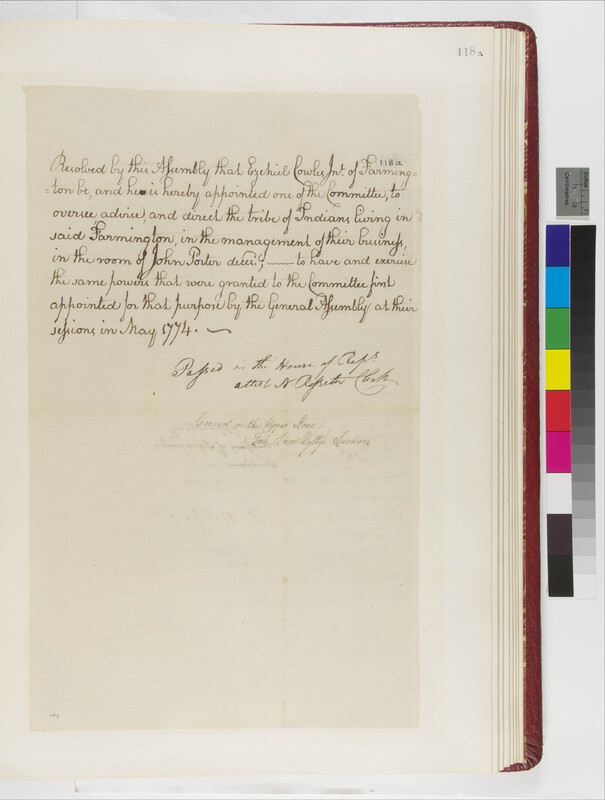 118a
118a
Resolved by this Assembly that Ezekiel Cowles Junr. of Farming=
=ton be, and he is hereby appointed one of the Committee, to
oversee advise, and direct the tribe of Indians living in
said Farmington, in the management of their business,
in the room of John Porter decd.; —— to have and exercise
the same powers that were granted to the Committee first
appointed for that purpose by the General Assembly at their
sessions in May 1774. —
Passed in the House of Reps.
attest N Rosseter Clerk
Concurd in the Upper House
Test George Wyllys Secretary